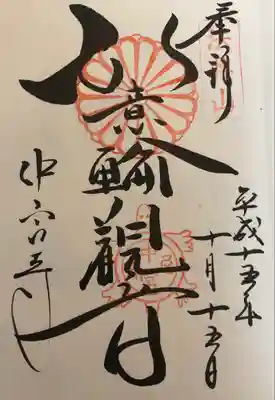 奉拝
平成十五年
十月十五日
如意輪観音
中宮寺